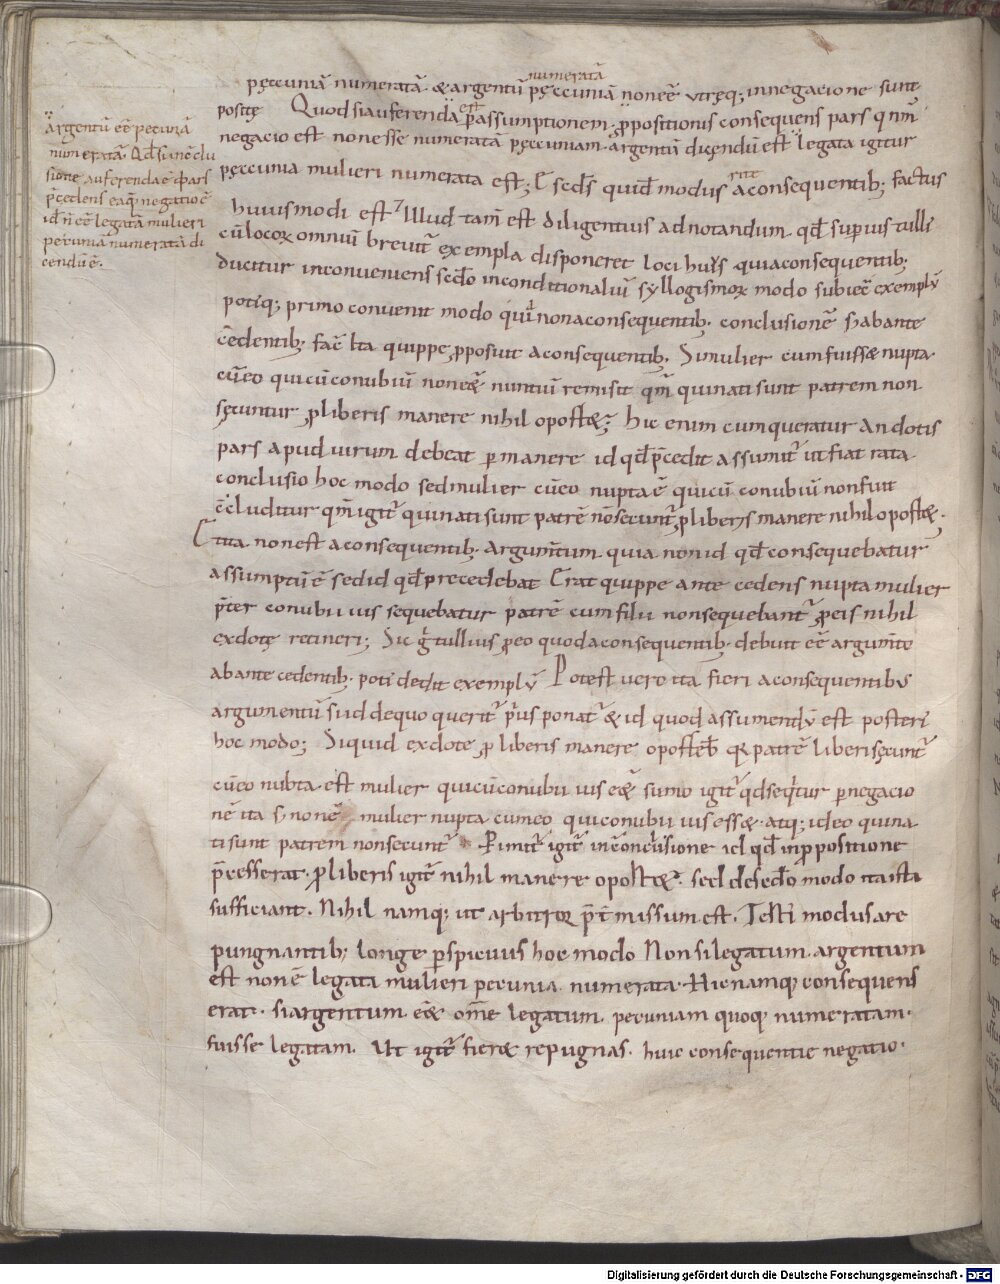 numeratā
pęccuniā numeratā · & argentū pęccuniā non eē̄ vtręq; in negacione sunt
positę Quod si auferenda ē p assumptionem · ꝓpositionis consequens pars qnm̄
negacio est non esse numeratā pęccuniam · argentū dicendū est legata igitur
pęccunia mulieri numerata est; Et secds̄ quid̄ modus a consequentib; factus
huiusmodi est Illud tam̄ est diligentius adnotandum · qd̄ superius tulli
cū locoꝝ omniū breuit exempla disponeret loci huiꝰ quia consequentib;
ducitur inconueniens secd̄o inconditionaliū syllogismoꝝ modo subiec̄ exemplū
potiq; primo conuenit modo qui non a consequentib · conclusionē s; ab ante
cēdentib · fac̄ Ita quippe ꝓposuit a consequentib · Si mulier cum fuiss& nupta
cū eo quicū conubiū non eēt nuntiū remisit qm̄ qui nati sunt patrem non
sęcuntur ꝓ liberis manere nihil oport&; Hic enim cum queratur an dotis
pars apud uirum debeat ꝑmanere id qd̄ p̄cedit assumit ut fiat rata
conclusio hoc modo sed mulier cū eo nupta ē quicū conubiū non fuit
cc̄luditur qm̄ igit qui nati sunt patrē nō secunt ꝓ liberys manere nihil oport& ·
Et ita non est a consequentib · argumtum quia non id qd̄ consequebatur
assumptū ē sed id qd̄ precedebat Erat quippe ante cedens nupta mulier
p̄ter conubii ius sequebatur patrē cum filii non sequebant ꝓ eis nihil
ex dote retineri; Sic g̊ tullius ꝓ eo quod a consequentib · debuit eē argumto
ab ante cedentib · poti dedit exemplū Potest uero ita fieri a consequentibꝰ
argumentū si ud de quo querit p̓us ponat & id quod assumendū est posteri
hoc modo; Siquid ex dote ꝓ liberis manere oporteb qꝛ patrē liberi sęcunt
cū eo nubta est mulier quicū conubii ius e& sumo igit qd seqtur ꝑ negacio
nē ita s; non ē mulier nupta cum eo qui conubii ius ess& · atq; ideo qui na
ti sunt patrem non secunt Pimit igit in cōnclusione id qd̄ in ꝓpositione
p̄cesserat · ꝓ liberis igit nihil manere oport& · sed de secdo modo ita ista
sufficiant · Nihil namq; ut arbitroꝛ p̄t missum est · Testi modus are
pungnantib; longe ꝑspicuus hoc modo Non si legatum · argentum
est non ē legata mulieri pecunia · numerata · Hic namq; consequens
erat · si argentum e& om̄e legatum · pecuniam quoq; numeratam ·
fuisse legatam · Ut igit fier& repugnas · huic consequentie negatio ·
argentū eē pecuniā
numeratā · Qd̄ si in cc̄lu
sione auferenda ē pars
p̄cedens eaq; negatio ē
id n̄ eē legatā mulieri
pecuniā numeratā di
cendū ē ·
Digitalisierung gefördert durch die Deutsche Forschungsgemeinschaft - DFG